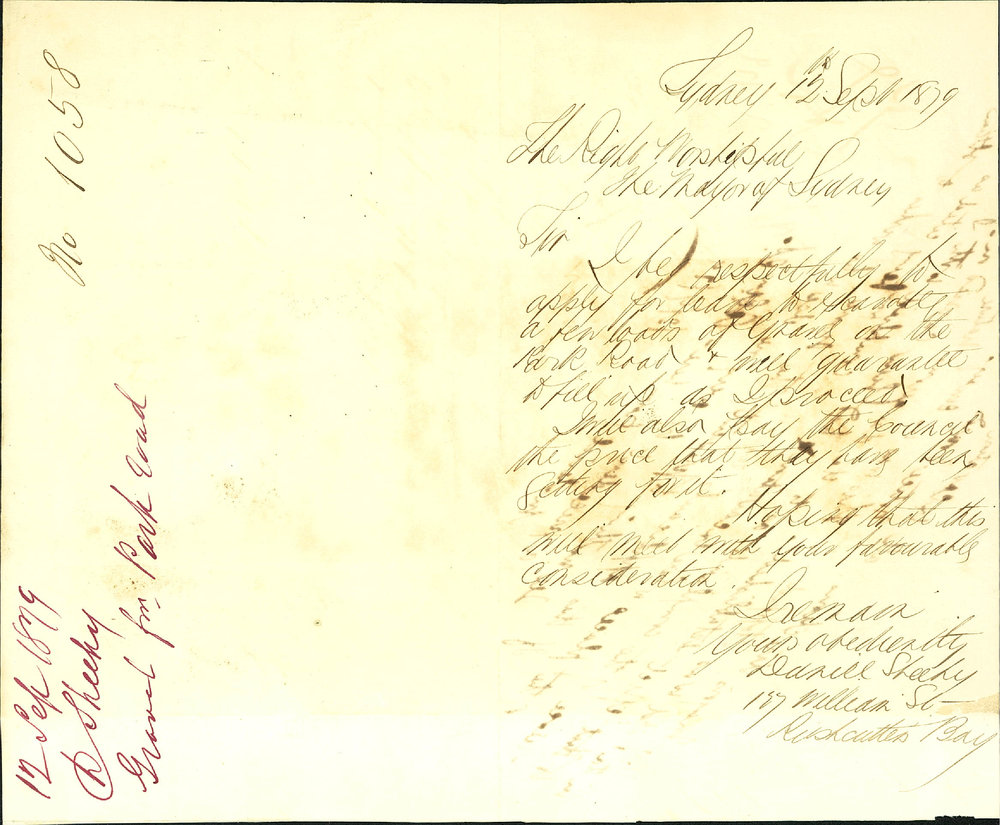 No 1058
12 Sep 1879
D Sheehy
Gravel fm Park Road
Sydney 12th Sept 1879
The Right Worshipful
The Mayor of Sydney
Sir
I beg respectfully to
apply for leave to excavate
a few loads of Gravel on the
Park Road & will guarantee
to fill up as I proceed,
I will also pay the Council
the price that they have been
getting for it.
Hoping that this
will meet with your favourable
consideration.
I remain
Yours obediently
Daniel Sheehy
William St
Rushcutters Bay